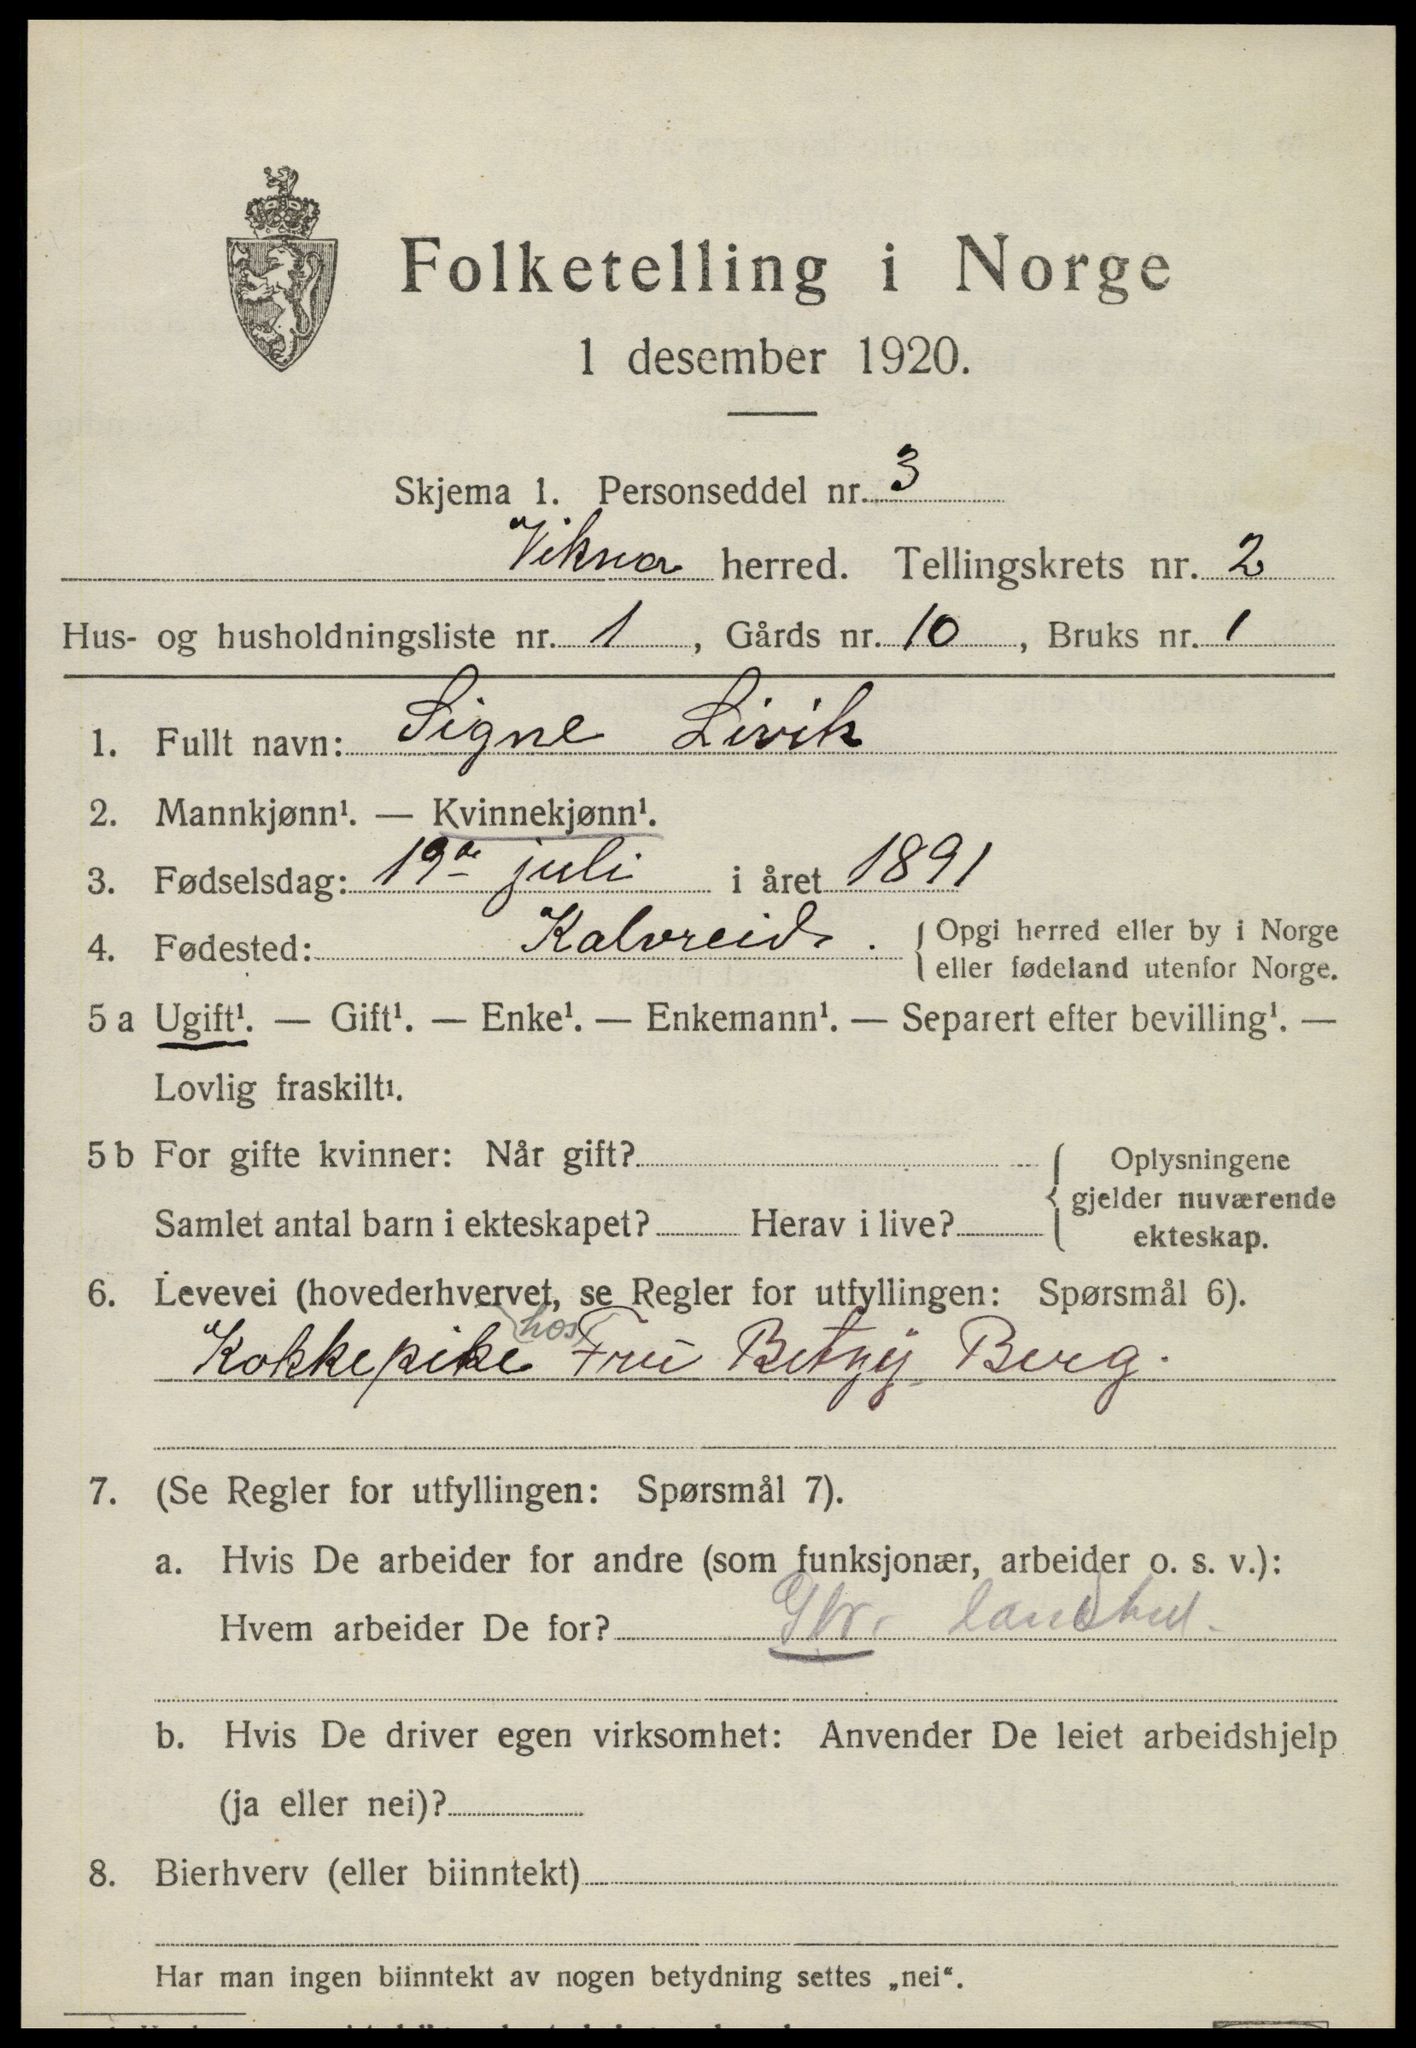 Folketelling i Norge
1 desember 1920.
Skjema 1. Personseddel nr. 3
Vikna herred. Tellingskrets nr. 2
Hus- og husholdningsliste nr. 1, Gårds nr. 10, Bruks nr. 1
1. Fullt navn: Signe Livik
2. Mannkjønn¹. — Kvinnekjønn¹.
3. Fødselsdag: 19de juli i året 1891
4. Fødested: Kolvreid. { Opgi herred eller by i Norge
eller fødeland utenfor Norge.
5 a Ugift¹. — Gift¹. — Enke¹. — Enkemann¹. — Separert efter bevilling¹. —
Lovlig fraskilt¹.
5 b For gifte kvinner: Når gift?
Samlet antal barn i ekteskapet? Herav i live?
{ Oplysningene
gjelder nuværende
ekteskap.
6. Levevei (hovederhvervet, se Regler for utfyllingen: Spørsmål 6).
Kokkepike hos Fru Betzy Berg.
7. (Se Regler for utfyllingen: Spørsmål 7).
a. Hvis De arbeider for andre (som funksjonær, arbeider o. s. v.):
Hvem arbeider De for? Gbr.
b. Hvis De driver egen virksomhet: Anvender De leiet arbeidshjelp
(ja eller nei)?
8. Bierhverv (eller biinntekt)
Har man ingen biinntekt av nogen betydning settes „nei“.